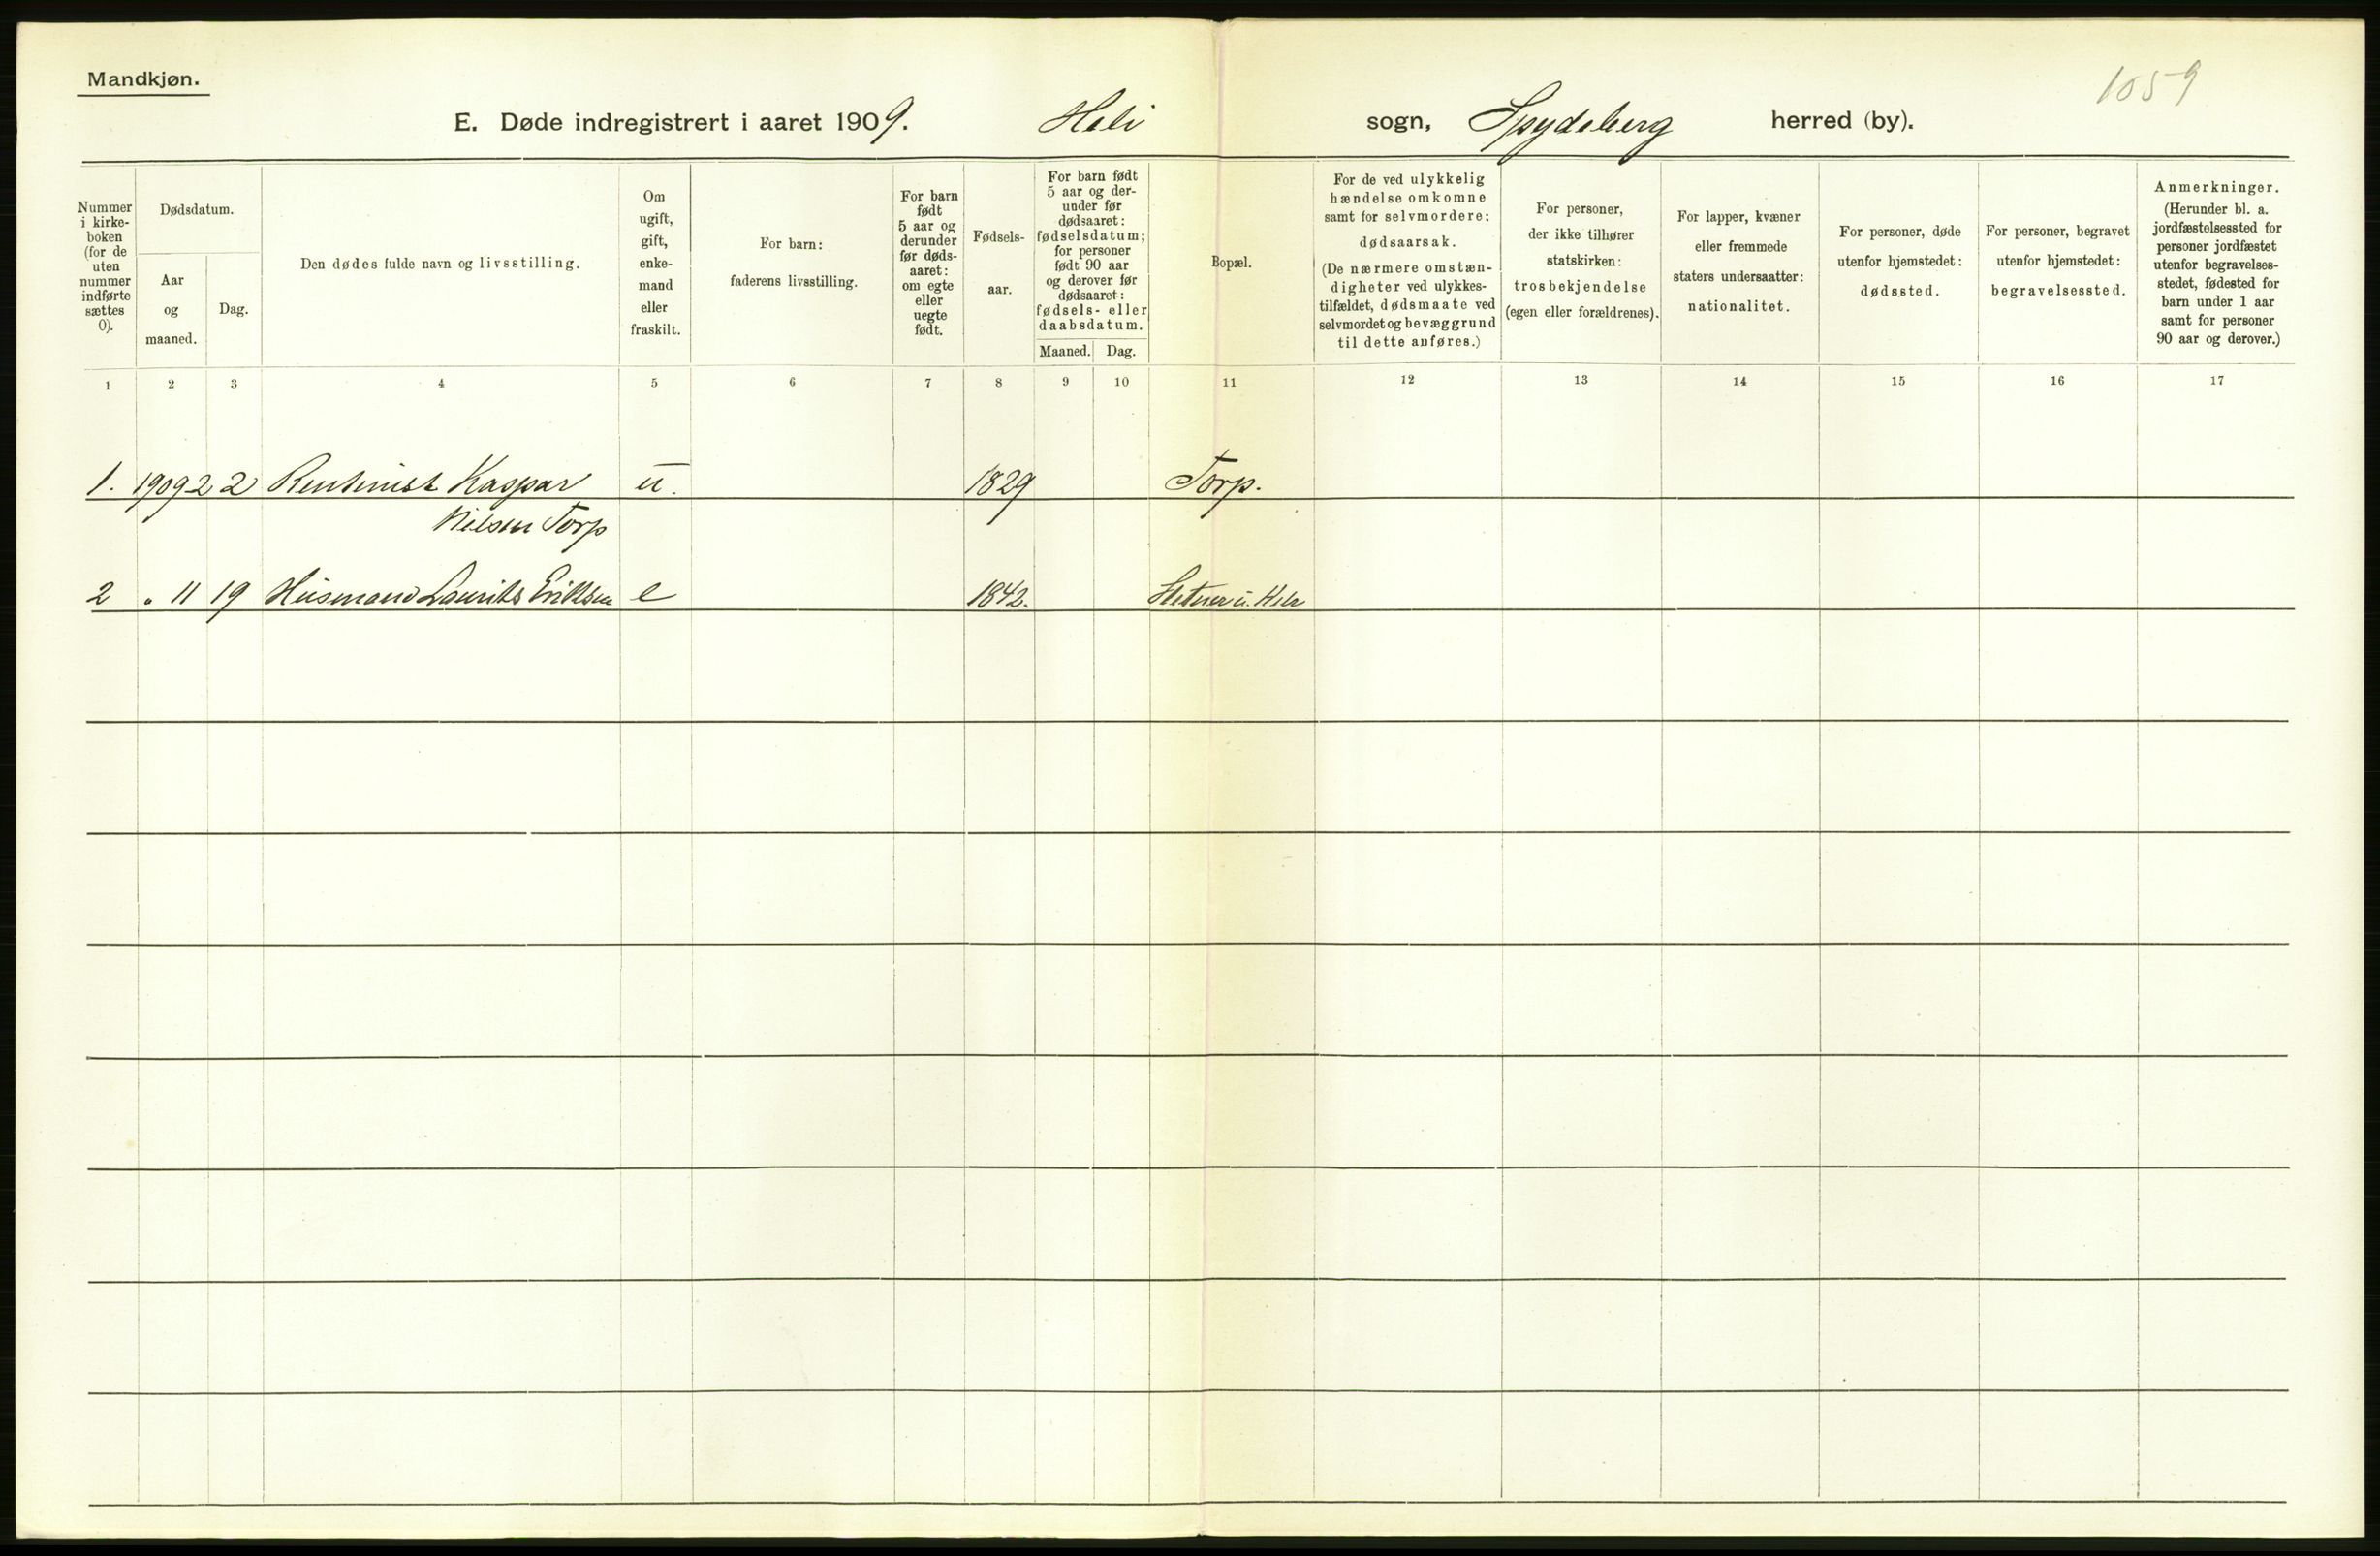 Mandkjøn.
1059
E. Døde indregistrert i aaret 1909. Heli sogn, Spydeberg herred (by).
Nummer i kirke-boken (for de uten nummer indførte sættes 0).
Dødsdatum.
Aar og maaned.
Dag.
Den dødes fulde navn og livsstilling.
Om ugift, gift, enke-mand eller fraskilt.
For barn: faderens livsstilling.
For barn født 5 aar og derunder før døds-aaret: om egte eller uegte født.
Fødsels-aar.
For barn født 5 aar og der-under før dødsaaret: fødselsdatum; for personer født 90 aar og derover før dødsaaret: fødsels- eller daabsdatum.
Maaned.
Dag.
Bopæl.
For de ved ulykkelig hændelse omkomne samt for selvmordere: dødsaarsak. (De nærmere omstæn-digheter ved ulykkes-tilfældet, dødsmaate ved selvmordet og bevæggrund til dette anføres.)
For personer, der ikke tilhører statskirken: trosbekjendelse (egen eller forældrenes).
For lapper, kvæner eller fremmede staters undersaatter: nationalitet.
For personer, døde utenfor hjemstedet: dødssted.
For personer, begravet utenfor hjemstedet: begravelsessted.
Anmerkninger. (Herunder bl. a. jordfæstelsessted for personer jordfæstet utenfor begravelses-stedet, fødested for barn under 1 aar samt for personer 90 aar og derover.)
1 2 3 4 5 6 7 8 9 10 11 12 13 14 15 16 17
1. 1909 2 2 Rentenist Kaspar u. 1829 Torp.
Nilsen Torp
2 " 11 19 Husmand Laurits Eriksen e 1842.